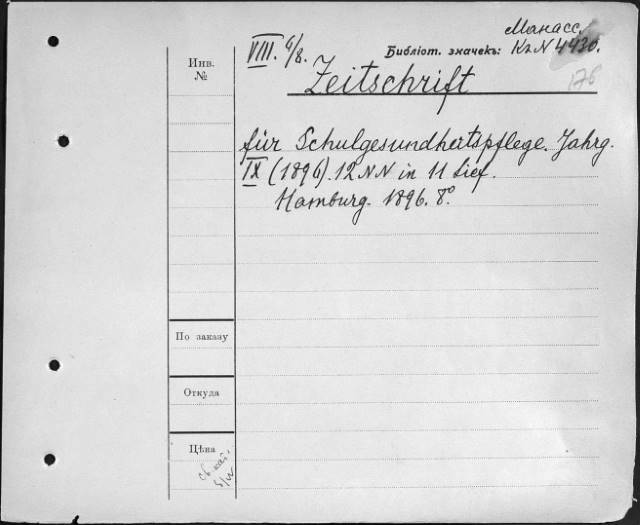 Манасс.
VIII. 6/8. Библіот. значекъ: Кл N 4430.
176
Инв.
№
Zeitschrift
für Schulgesundheitspflege. Jahrg.
IX (1896). 12 NN in 11 Lief.
Hamburg. 1896. 8°.
По заказу
Откуда
Цѣна